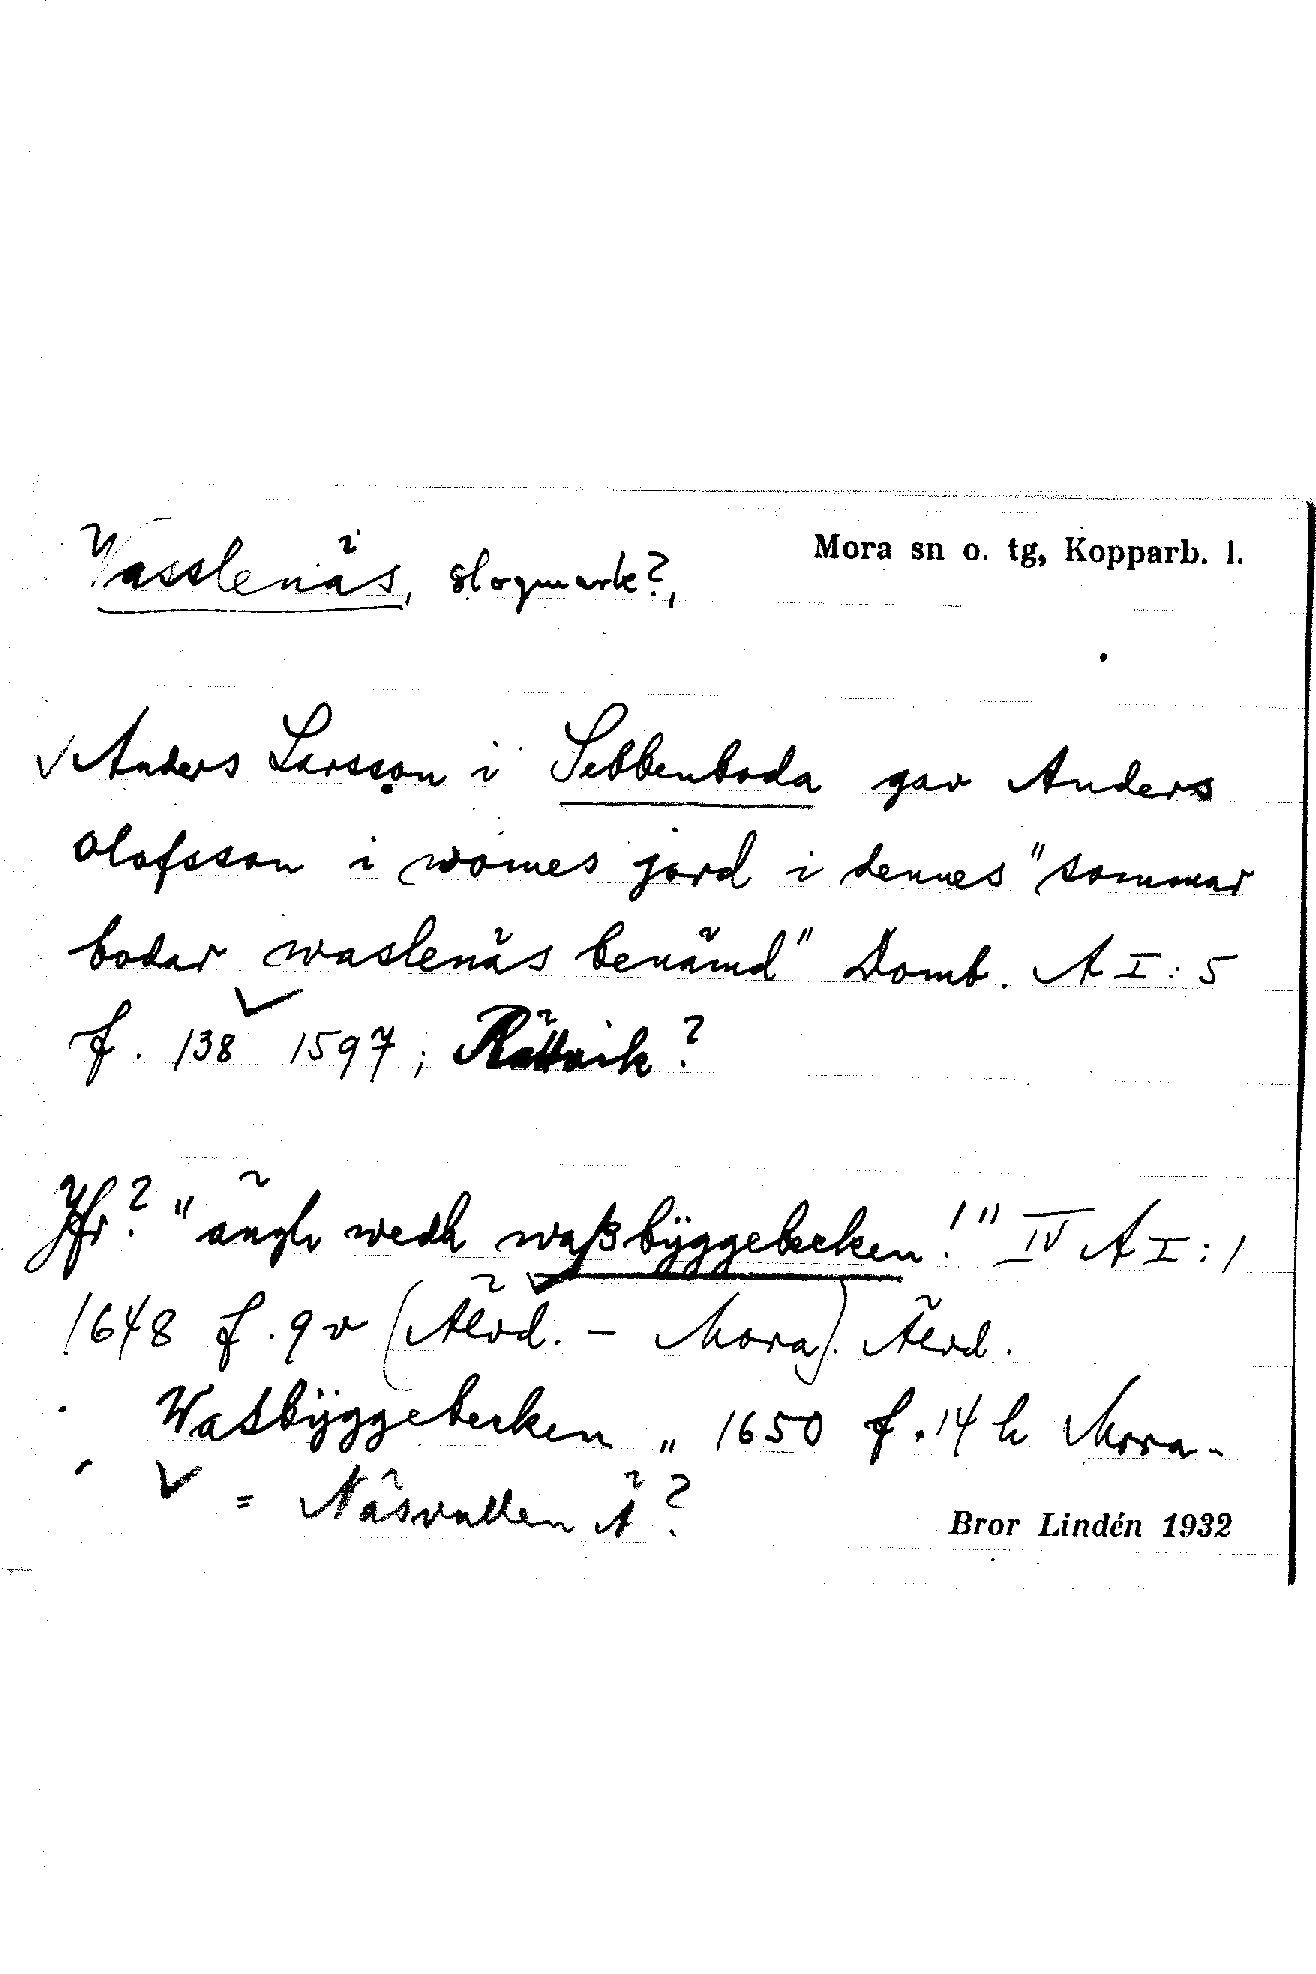 Mora sn o. tg, Kopparb. l.
Vasslenäs, slogmark?,
Anders Larsson i Sebbenboda gav Anders
Olofsson i womes jord i dennes "sommar
bodar waslenäs benämd" Domb. A I:5
f. 138 1597; Rättvik?
Jfr? "ängh wedh waßbÿggebecken!" IV A I:1
1648 f. 9 v (Älvd. - Mora). Älvd.
Waßbÿggebecken „ 1650 f. 14 h Mora-
= Näsvallen Ä?
Bror Lindén 1932